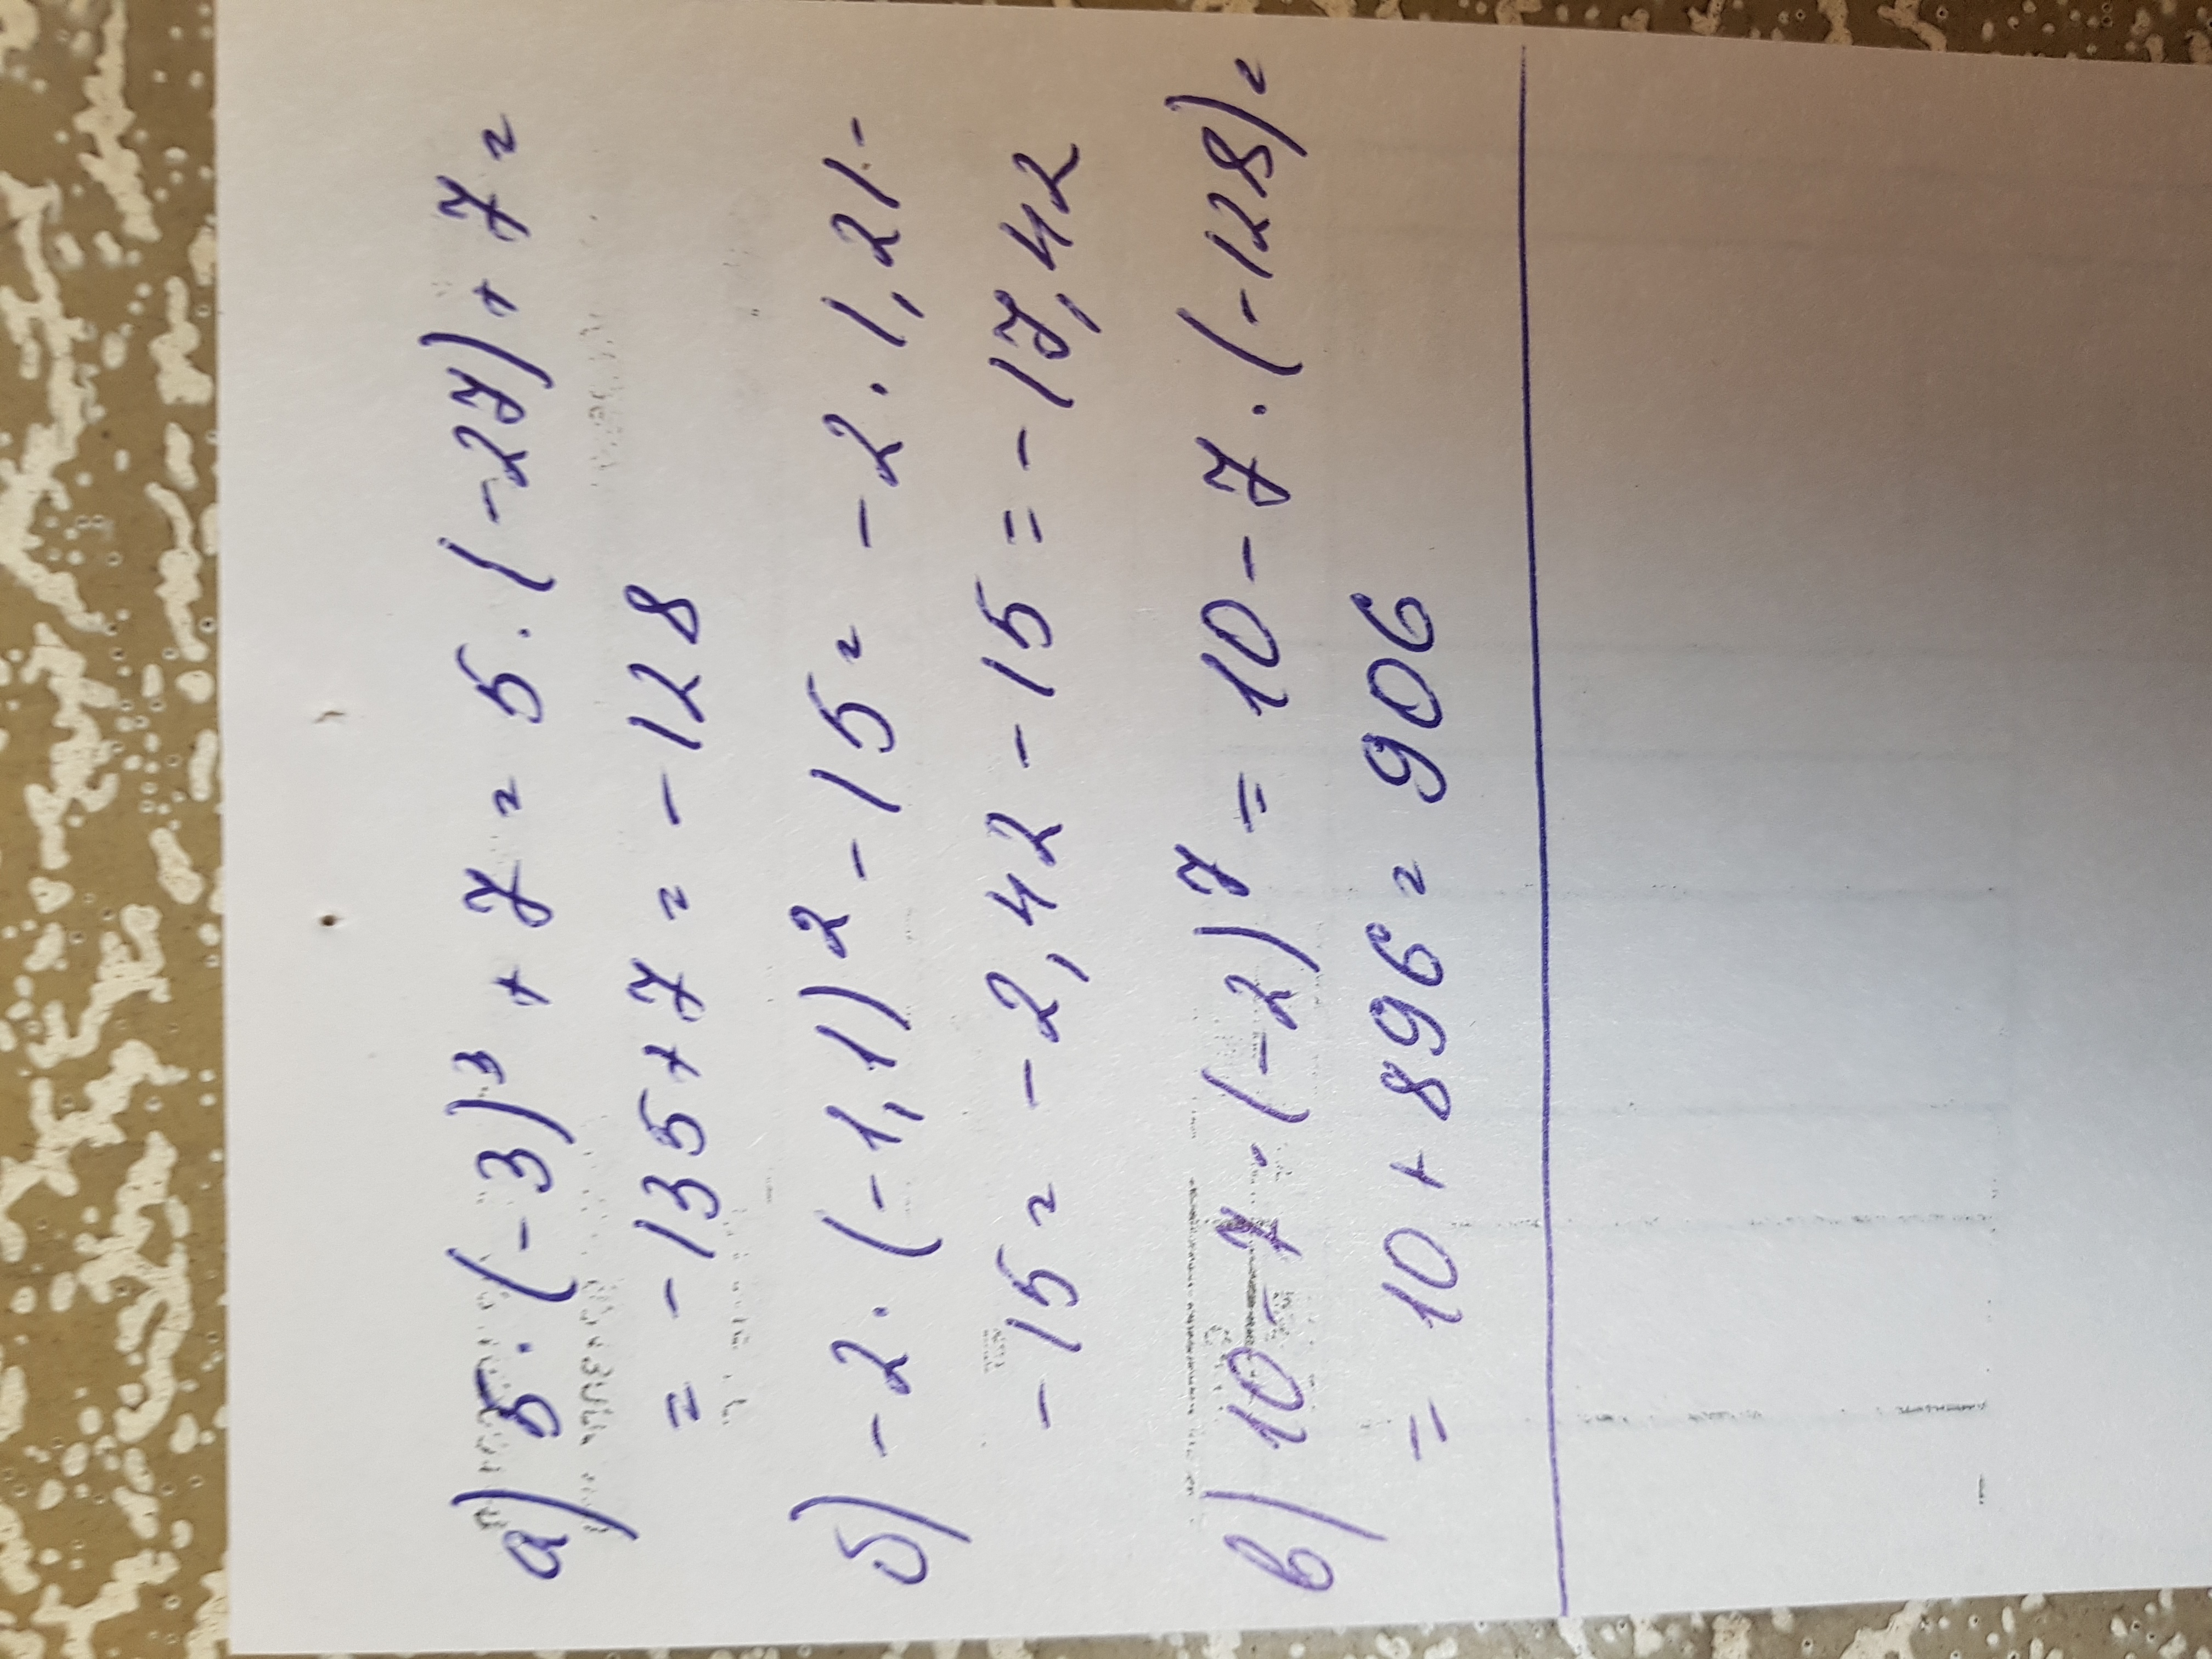 а) 5·(-3)³ + 7 = 5·(-27) + 7 =
= -135 + 7 = -128
б) -2·(-1,1)² - 15 = -2·1,21 -
- 15 = -2,42 - 15 = -17,42
в) 10 - 7·(-2)⁷ = 10 - 7·(-128) =
= 10 + 896 = 906